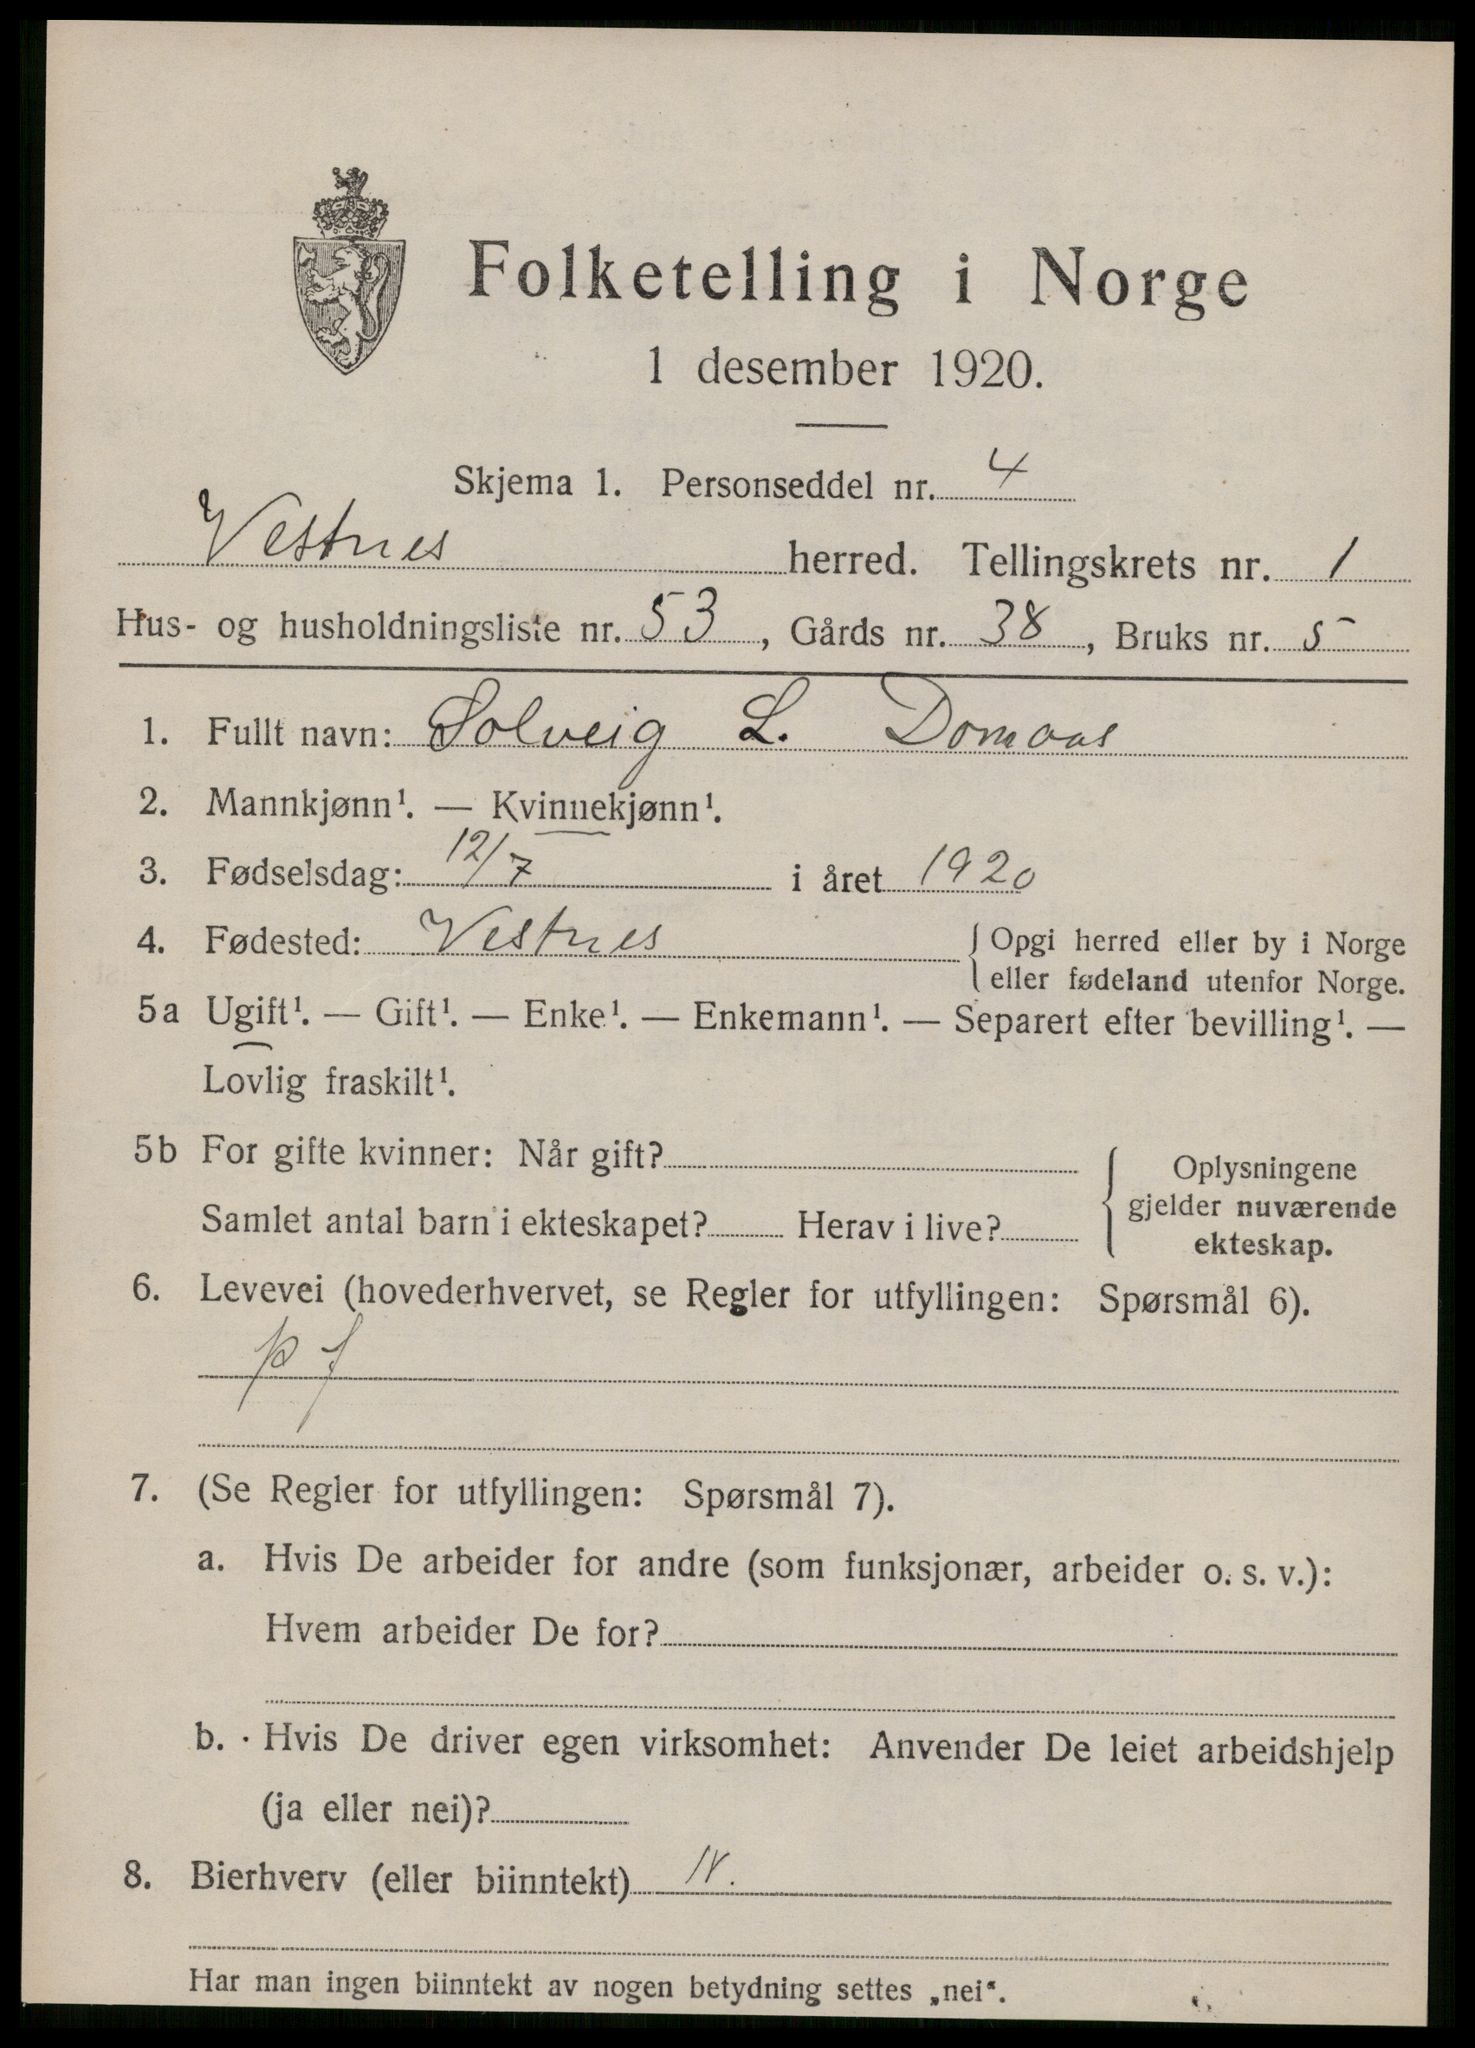 Folketelling i Norge
1 desember 1920.
Skjema 1. Personseddel nr. 4
Vestnes herred. Tellingskrets nr. 1
Hus- og husholdningsliste nr. 53, Gårds nr. 38, Bruks nr. 5
1. Fullt navn: Solveig L. Domaas
2. Mannkjønn¹. — Kvinnekjønn¹.
3. Fødselsdag: 12/7 i året 1920
4. Fødested: Vestnes { Opgi herred eller by i Norge
eller fødeland utenfor Norge.
5a Ugift¹. — Gift¹. — Enke¹. — Enkemann¹. — Separert efter bevilling¹. —
Lovlig fraskilt¹.
5b For gifte kvinner: Når gift?
Samlet antal barn i ekteskapet? Herav i live?
{ Oplysningene
gjelder nuværende
ekteskap.
6. Levevei (hovederhvervet, se Regler for utfyllingen: Spørsmål 6).
p f
7. (Se Regler for utfyllingen: Spørsmål 7).
a. Hvis De arbeider for andre (som funksjonær, arbeider o. s. v.):
Hvem arbeider De for?
b. Hvis De driver egen virksomhet: Anvender De leiet arbeidshjelp
(ja eller nei)?
8. Bierhverv (eller biinntekt) N.
Har man ingen biinntekt av nogen betydning settes „nei“.